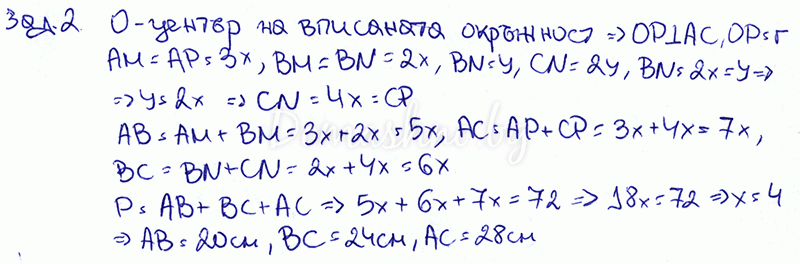 Зад.2. О-център на вписаната окръжност ⇒ OP⊥AC, OP=r
AM = AP = 3x, BM = BN = 2x, BN=y, CN=2y, BN=2x=y ⇒
⇒ y=2x ⇒ CN = 4x = CP
AB = AM + BM = 3x+2x = 5x, AC = AP + CP = 3x+4x = 7x,
BC = BN+CN = 2x + 4x = 6x
P = AB + BC + AC ⇒ 5x + 6x + 7x = 72 ⇒ 18x = 72 ⇒ x = 4
⇒ AB = 20см, BC = 24см, AC = 28см